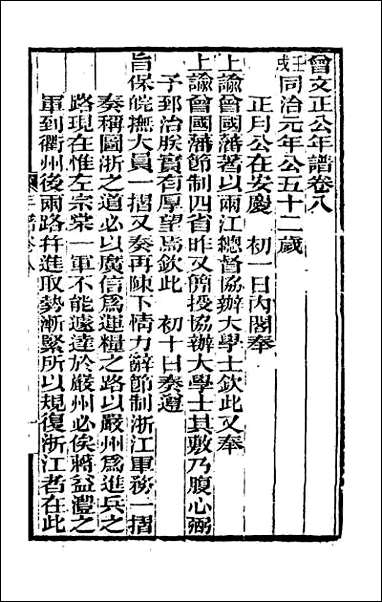 曾文正公年譜卷八
壬戌同治元年公五十二歲
正月公在安慶　初一日內閣奉
上諭曾國藩著以兩江總督協辦大學士欽此又奉
上諭曾國藩節制四省昨又簡授協辦大學士其敷乃腹心弼
予郅治朕實有厚望焉欽此　初十日奏遵
旨保皖撫大員一摺又奏再陳下情力辭節制浙江軍務一摺
奏稱圖浙之道必以廣信爲運糧之路以嚴州爲進兵之
路現在惟左宗棠一軍不能遠達於嚴州必俟蔣益澧之
軍到衢州後兩路幷進取勢漸緊所以規復浙江者在此